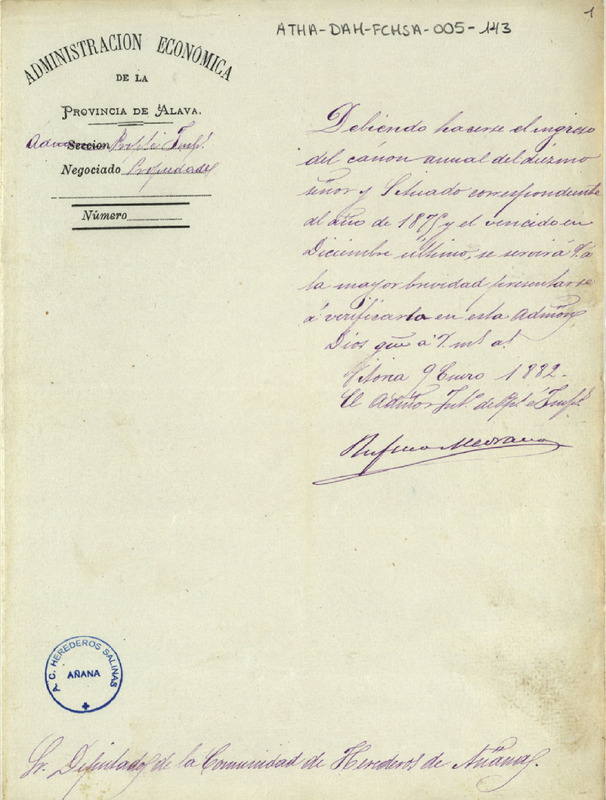 1
ATHA-DAH-FCHSA-005-143
ADMINISTRACION ECONÓMICA
DE LA
PROVINCIA DE ALAVA.
Seccion
Negociado Propiedades
Número
Debiendo hacerse el ingreso
del cánon anual del diezmo
y Situado correspondiente
al año de 1879 y el vencido en
Diciembre último, se servirá V. á
la mayor brevedad presentarse
á verificarla en esta Admõn
Dios gue á V. ms as.
Vitoria 9 Enero 1882-
El Admor
Rufino Medrano
A. C. HEREDEROS SALINAS
AÑANA
Sr. Diputado de la Comunidad de Herederos de Añana.